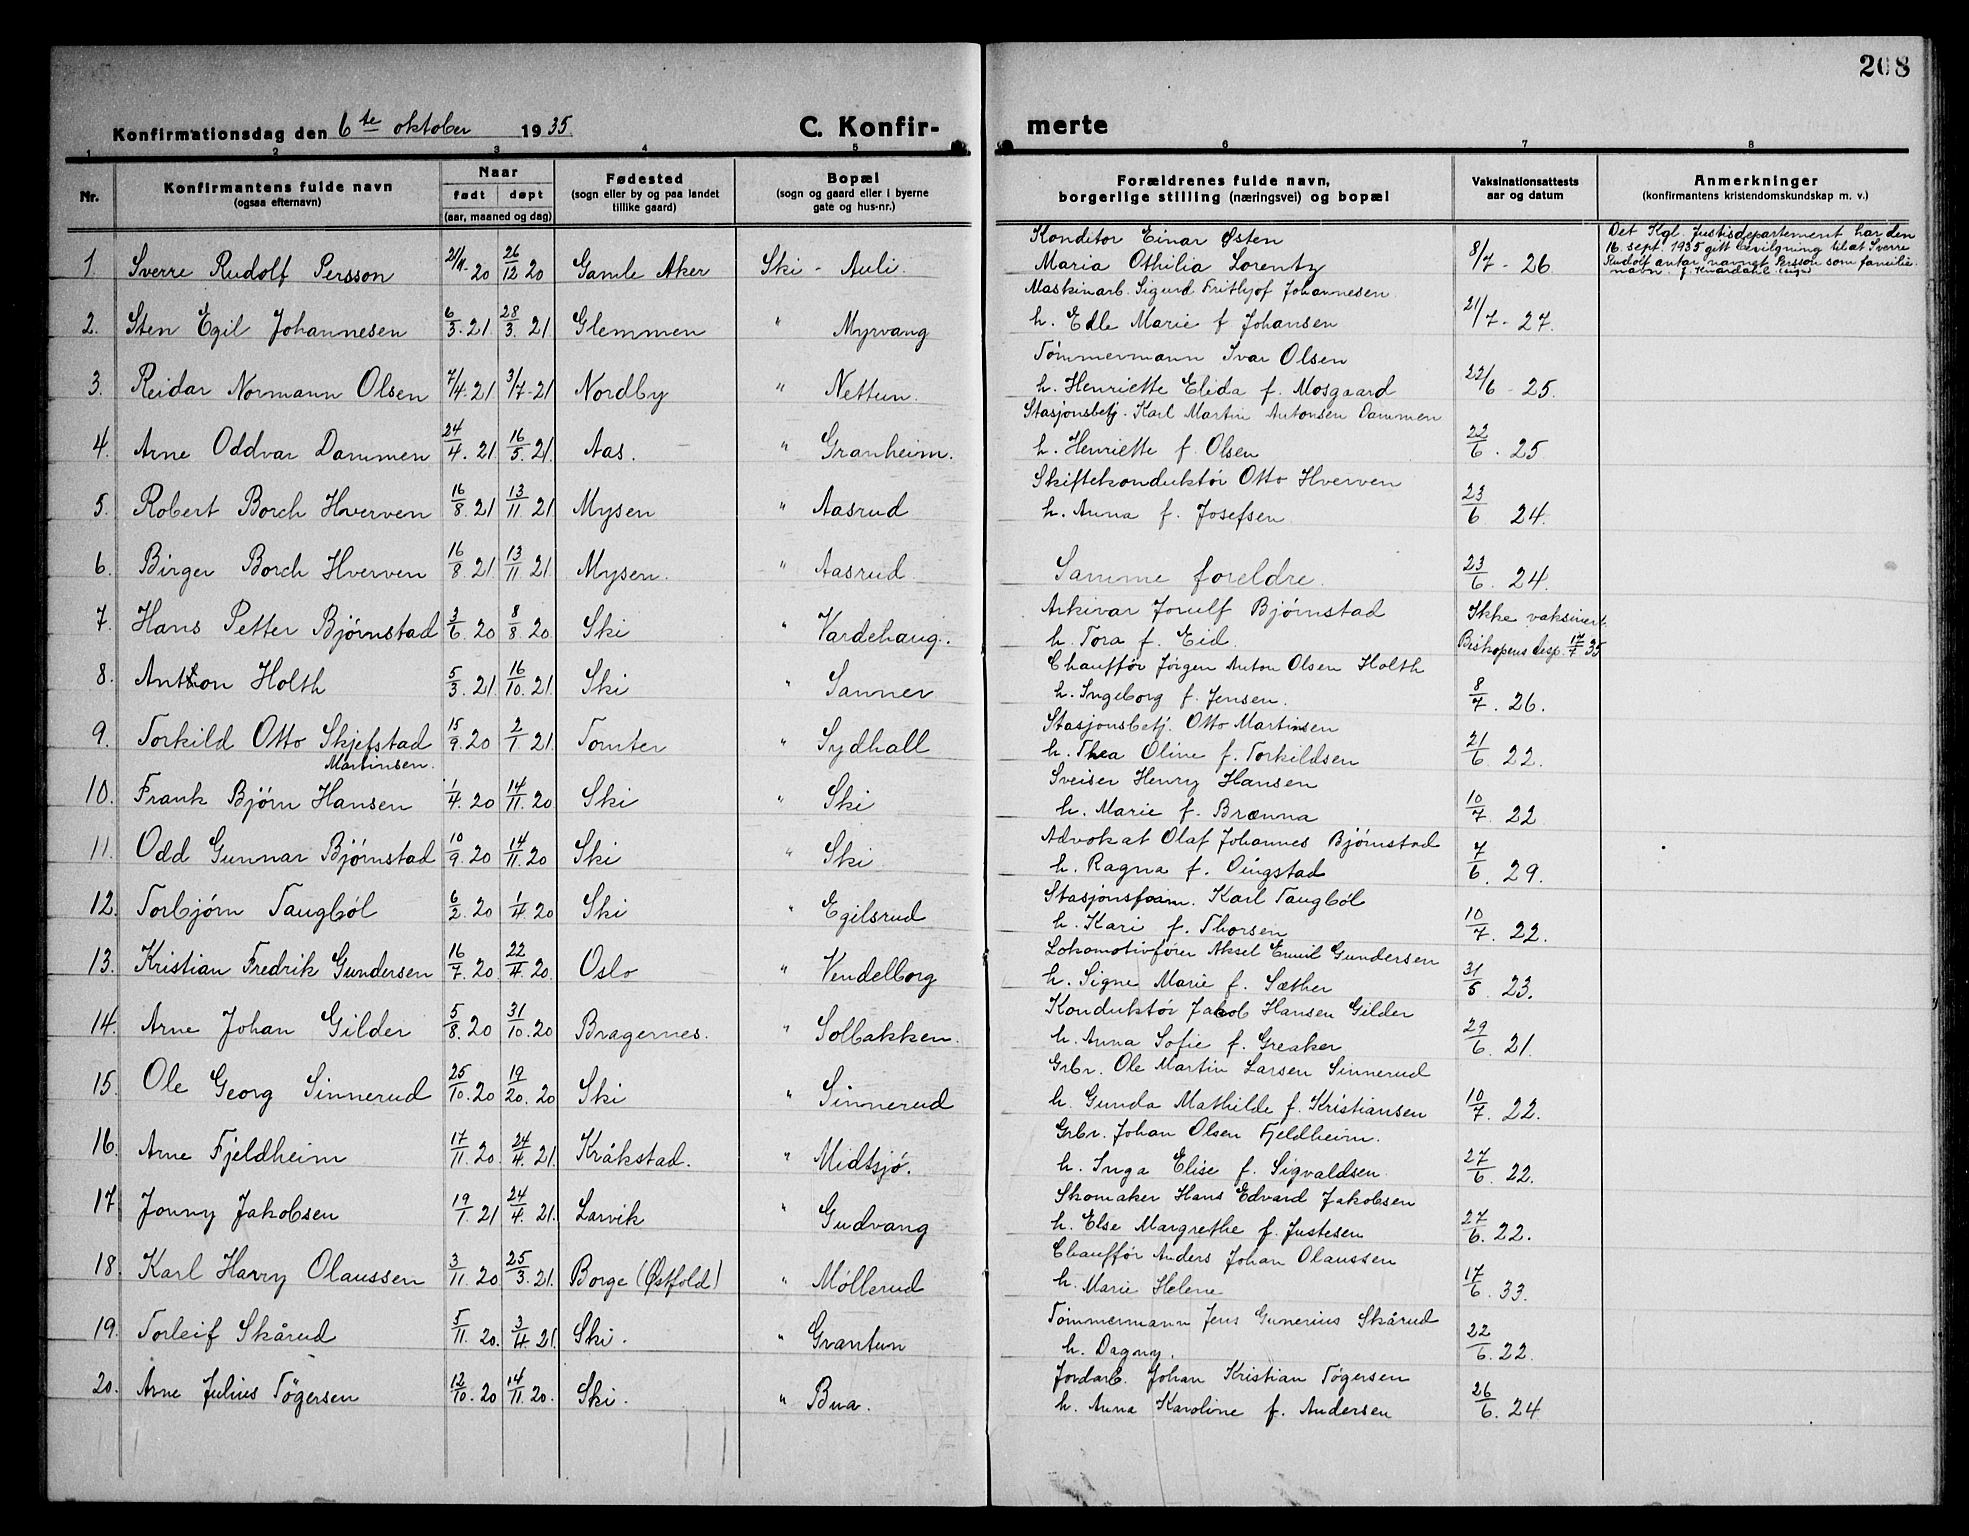 208
Konfirmationsdag den 6te oktober 1935. C. Konfir- merte
1 2 3 4 5 6 7 8
Nr. Konfirmantens fulde navn (ogsaa efternavn) Naar født døpt (aar, maaned og dag) Fødested (sogn eller by og paa landet tillike gaard) Bopæl (sogn og gaard eller i byerne gate og hus-nr.) Forældrenes fulde navn, borgerlige stilling (næringsvei) og bopæl Vaksinationsattests aar og datum Anmerkninger (konfirmantens kristendomskundskap m. v.)
Konditor Einar Østen Det Kgl. Justisdepartement har den
16. sept. 1935 gitt bevilgning til at Sverre
1 Sverre Rudolf Persson 20 26/12 20 Gamle Aker Ski - Auli. Maria Othilia Lorentz 8/7 - 26 Rudolf antar navnet Persson som familie
navn.
Maskinarb. Sigurd Frithjof Johannesen
2. Sten Egil Johannesen 6/3. 21. 28/3. 21. Glemmen " Myrvang h. Edle Marie f Johansen 21/7 - 27.
Tømmermann Ivar Olsen
3. Reidar Normann Olsen 7/4. 21 3/7 - 21 Nordby " Nettun. h. Henriette Elida f. Mosgaard 22/6 - 25.
Stasjonsbetj. Karl Martin Antonsen Dammen
4. Arne Oddvar Dammen 24/4. 21 16/5. 21. Aas. " Granheim. h. Henriette f. Olsen 22/6. 25.
Skiftekonduktør Otto Hverven
5. Robert Borch Hverven 16/8 21 13/11 21 Mysen " Aasrud h. Anna f. Josefsen 23/6 24.
6. Birger Borch Hverven 16/8 21. 13/11 21. Mysen. " Aasrud. Samme foreldre. 23/6. 24.
Arkivar Jorulf Bjørnstad Ikke vaksinert.
7. Hans Petter Bjørnstad 3/6. 20 8/8. 20. Ski " Vardehaug. h. Tora f. Eid. Biskopens disp. 17/7 35
Chauffør Jørgen Anton Olsen Holth
8. Anton Holth 5/3. 21. 16/10. 21. Ski " Sanner h. Ingeborg f. Jensen. 8/7. 26.
Stasjonsbetj. Otto Martinsen
9. Torkild Otto Skjefstad 15/9. 20 2/1. 21. Tomter " Sydhall h. Thea Oline f. Torkildsen 21/6. 22.
Martinsen.
Sveiser Henry Hansen
10. Frank Bjørn Hansen 1/4. 20 14/11. 20 Ski " Ski h. Marie f. Brænna 10/7. 22
Advokat Olaf Johannes Bjørnstad
11. Odd Gunnar Bjørnstad 10/9. 20 14/11. 20 Ski " Ski h. Ragna f. 7/6. 29.
Karl Taugbøl
12. Torbjørn Taugbøl 6/2. 20 1/4. 20 Ski " Egilsrud h. Kari f. Thorsen 10/7. 22.
Lokomotivfører Aksel Emil Gundersen
13. Kristian Fredrik Gundersen 16/7. 20 22/4. 20. Oslo " Vendelborg h. Signe Marie f. Sæther 31/5. 23.
Konduktør Jakob Hansen Gilder
14. Arne Johan Gilder 5/8. 20 31/10. 20 Bragernes. " Solbakken. h. Anna Sofie f. Greaker 29/6. 21.
Grbr. Ole Martin Larsen Sinnerud
15. Ole Georg Sinnerud 25/10. 20 19/20. 20 Ski " Sinnerud h. Gunda Mathilde f. Kristiansen 10/7. 22.
Grbr. Johan Olsen Fjeldheim.
16. Arne Fjeldheim 17/11. 20. 24/4. 21. Kråkstad. " Midtsjø. h. Inga Elise f. Sigvaldsen 27/6. 22.
Skomaker Hans Edvard Jakobsen
17 Jonny Jakobsen 19/1. 21 24/4. 21. Larvik " Gudvang h. Else Margrethe f. Justesen 27/6. 22.
Chauffør Anders Johan Olaussen
18. Karl Harry Olaussen 3/11. 20 25/3. 21. Borge (Østfold) " Møllerud h. Marie Helene 17/6. 33.
Tømmermann Jens Gunerius Skårud
19. Torleif Skårud 5/11. 20. 3/4. 21. Ski. " Grantun h. Dagny. 22/6. 22.
Jordarb. Johan Kristian Tøgersen
20. Arne Julius Tøgersen 12/10. 20 14/11. 20. Ski. " Bua. h. Anna Karoline f. Andersen 26/6. 24